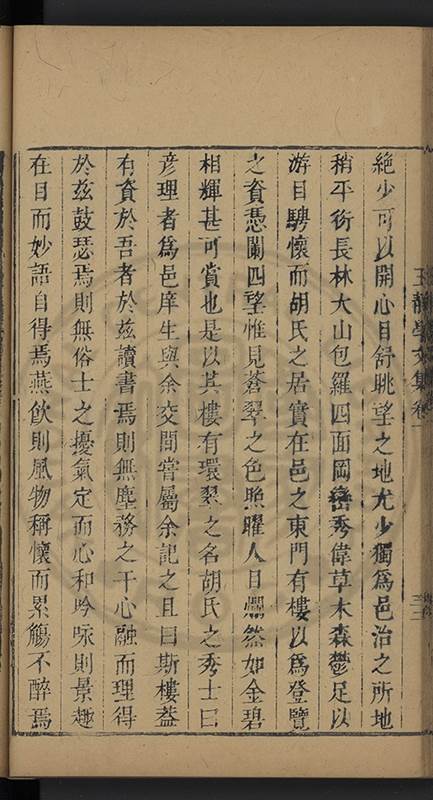 絶少可以開心目舒眺望之地尤少獨爲邑治之所地
稍平衍長林大山包羅四面岡巒秀偉草木森鬱足以
游目騁懷而胡氏之居實在邑之東門有樓以爲登覽
之資憑闌四望惟見蒼翠之色照曜人目爛然如金碧
相輝甚可賞也是以其樓有環翠之名胡氏之秀士曰
彥理者爲邑庠生與余交間嘗屬余記之且曰斯樓葢
有資於吾者於兹讀書焉則無塵務之干心融而理得
於兹鼓瑟焉則無俗士之擾氣定而心和吟咏則景趣
在目而妙語自得焉燕飲則風物稱懷而累觴不醉焉